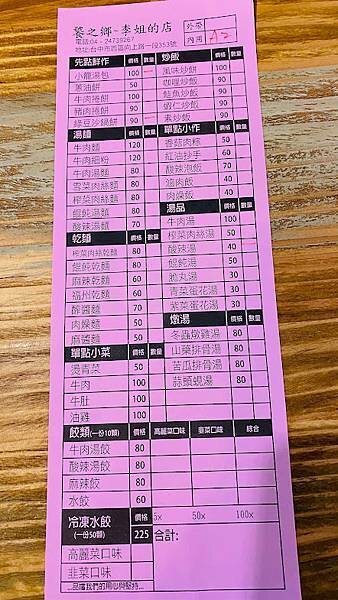 饕之鄉-李姐的店
電話:04-24739267
地址:台中市西區向上路一段353號
外帶
內用 A2
先點鮮作 價格 數量
小籠湯包 100
蔥油餅 50
牛肉捲餅 100
豬肉捲餅 90
綠豆沙鍋餅 100
湯麵 價格 數量
牛肉麵 120
牛肉細粉 120
牛肉湯麵 80
雪菜肉絲麵 80
榨菜肉絲麵 80
餛飩湯麵 80
酸辣湯麵 70
乾麵 價格 數量
榨菜肉絲乾麵 80
餛飩乾麵 80
麻辣乾麵 60
福州乾麵 60
酢醬麵 50
肉燥麵 50
麻醬麵 50
單點小菜 價格 數量
燙青菜 50
牛肉 100
牛肚 100
油雞 100
炒飯 價格 數量
風味炒飯 80
咖哩炒飯 80
鮭魚炒飯 80
蝦仁炒飯 80
素炒飯 80
單點小作 價格 數量
香菇肉粽 50
紅油抄手 60
酸辣泡飯 70
滷肉飯 40
肉燥飯 40
湯品 價格 數量
牛肉湯 100
榨菜肉絲湯 50
酸辣湯 40
餛飩湯 50
脆丸湯 50
青菜蛋花湯 50
紫菜蛋花湯 50
燉湯 價格 數量
冬蟲燉雞湯 80
山藥排骨湯 80
苦瓜排骨湯 80
蒜頭蜆湯 80
餃類(一份10顆) 價格 高麗菜口味 韭菜口味 綜合
牛肉湯餃 80
酸辣湯餃 80
麻辣餃 80
水餃 60
冷凍水餃 (一份50顆) 價格 225 5x 50x 100x
高麗菜口味
韭菜口味
合計:
...品嚐我們的用心與堅持...